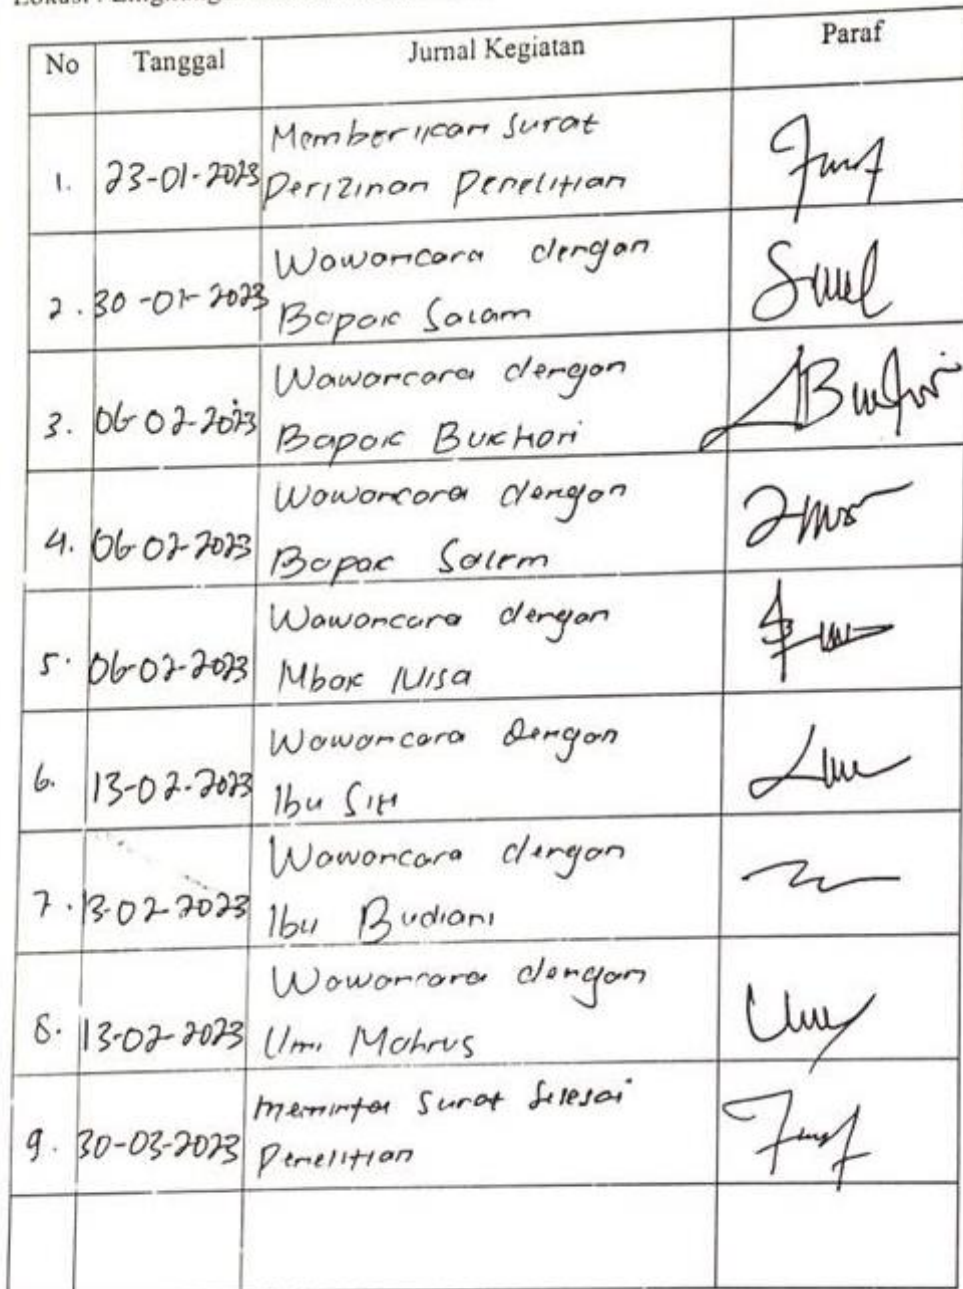 No Tanggal Jurnal Kegiatan Paraf
1. 23-01-2023 Memberikan Surat
Perizinan Penelitian
2. 30-01-2023 Wawancara dengan
Bapak Salam
3. 06-02-2023 Wawancara dengan
Bapak Bukhori
4. 06-02-2023 Wawancara dengan
Bapak Salem
5. 06-02-2023 Wawancara dengan
Mbak Nisa
6. 13-02-2023 Wawancara Dengan
Ibu Siti
7. 13-02-2023 Wawancara dengan
Ibu Budiani
8. 13-02-2023 Wawancara dengan
Umi Mahrus
9. 30-03-2023 Meminta Surat Selesai
Penelitian